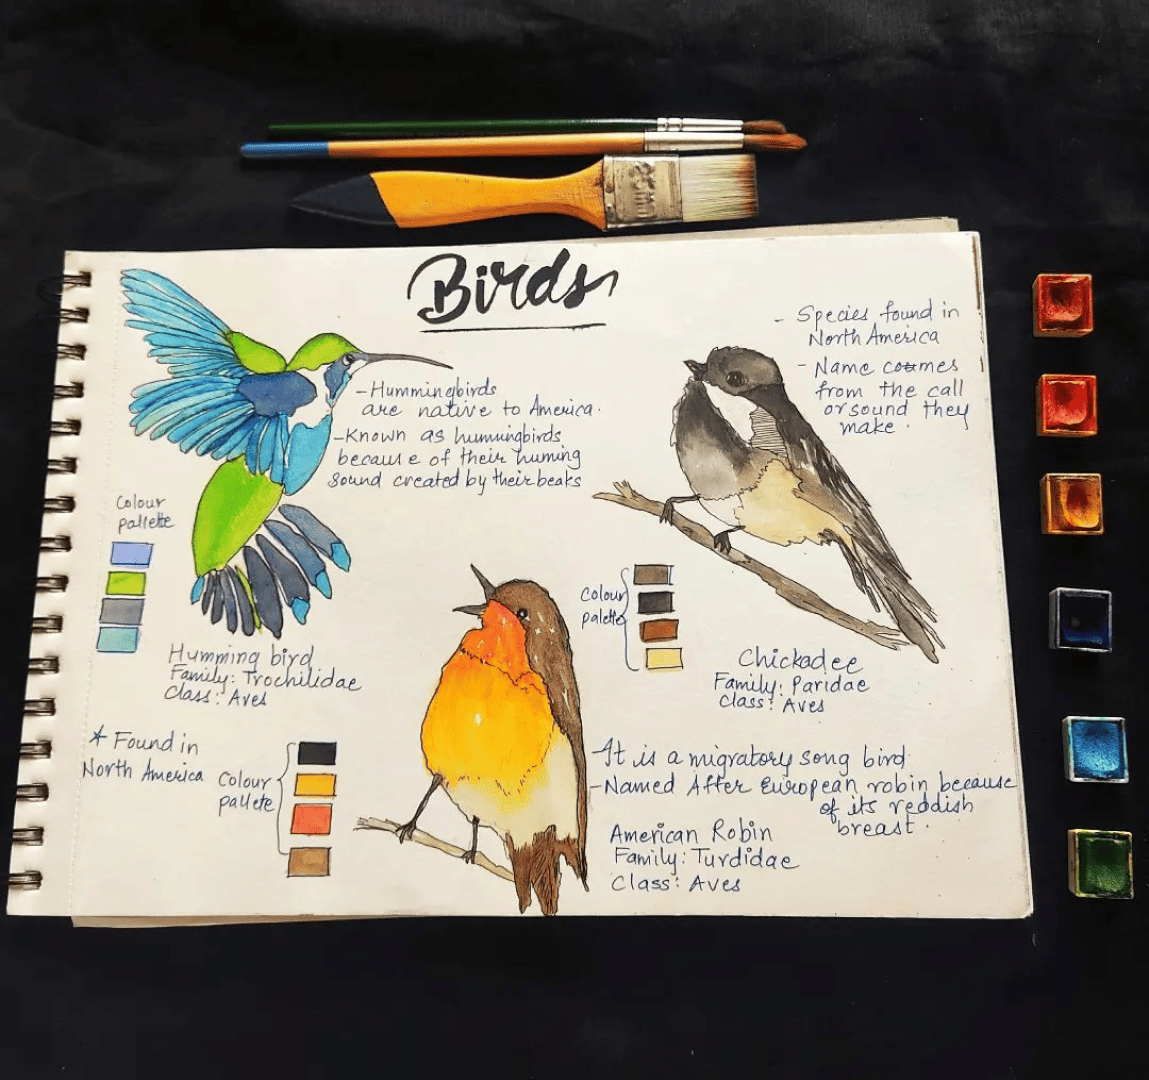 Birds
- Hummingbirds
are native to America.
- Known as hummingbirds
because of their huming
sound created by their beaks
Colour
pallette
Humming bird
Family: Trochilidae
Class: Aves
- Species found in
North America
- Name comes
from the call
or sound they
make.
Colour
palette
Chickadee
Family: Paridae
Class: Aves
* Found in
North America
Colour
pallete
- It is a migratory song bird.
- Named After European robin because
of its reddish
breast.
American Robin
Family: Turdidae
Class: Aves